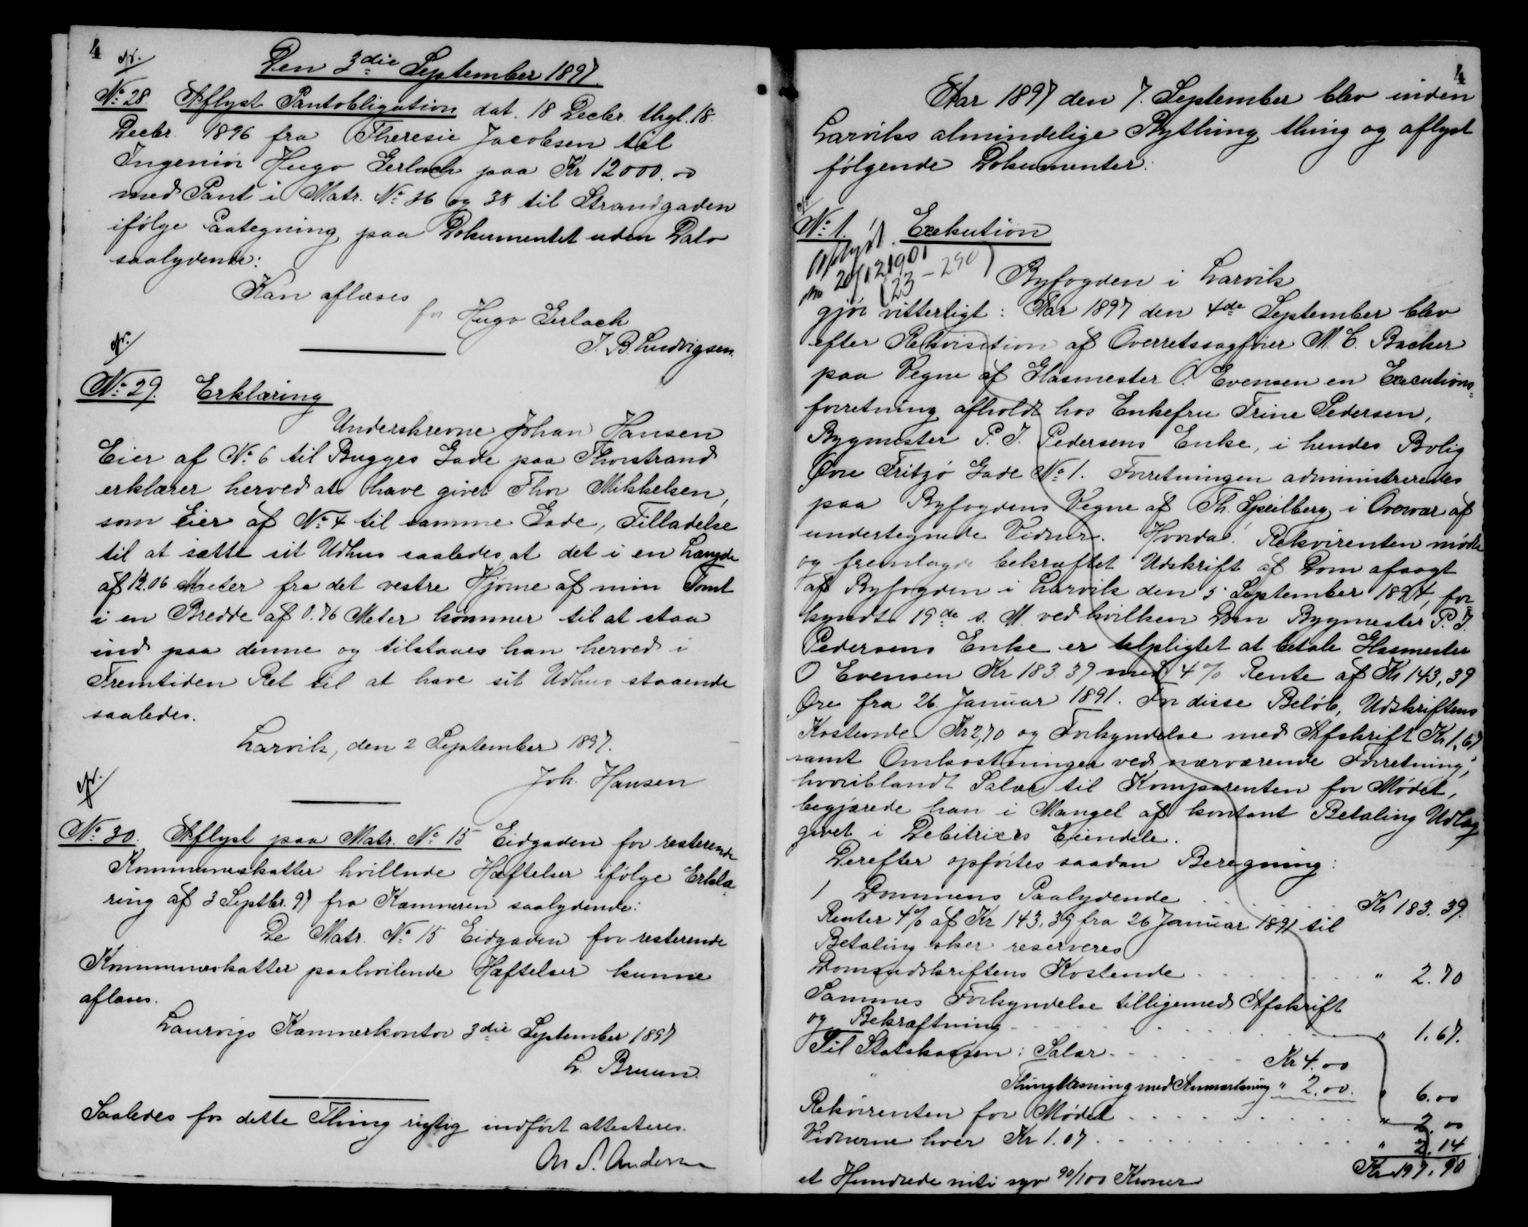 4
Den 3die September 1897
No 28 Aflyst Pantobligation dat. 18 Decbr. thgl. 18.
Decbr. 1896 fra Theresie Jacobsen til
Ingeniør Hugo Gerlach paa Kr 12000.00
med Pant i Matr. No 36 og 38 til Strandgaden
ifølge Paategning paa Dokumentet uden Dato
saalydende:
Kan aflæses
for Hugo Gerlach
J. B. Ludvigsen
No 29. Erklæring
Underskrevne Johan Hansen
Eier af No 6 til Bugges Gade paa Thorstrand
erklærer herved at have givet Thor Mikkelsen,
som Eier af No 4 til samme Gade, Tilladelse
til at sætte sit Udhus saaledes at det i en Længde
af 12.06 Meter fra det vestre Hjørne af min Tomt
i en Bredde af 0.76 Meter kommer til at staa
ind paa denne og tilstaaes han herved i
Fremtiden Ret til at have sit Udhus staaende
saaledes.
Larvik, den 2 September 1897.
Joh. Hansen
No 30. Aflyst paa Matr. No 15 Eidgaden for resterende
Kommuneskatter hvillende Hæftelser ifølge Erklæ-
ring af 3 Septbr. 97 fra Kæmneren saalydende:
De Matr. No 15 Eidgaden for resterende
Kommuneskatter paahvilende Hæftelser kunne
aflæses.
Laurvigs Kæmnerkontor 3die September 1897
L. Bruun.
Saaledes for dette Thing rigtig indført attesteres.
M S. Andersen
4
Aar 1897 den 7. September blev inden
Larviks almindelige Bything thing og aflyst
følgende Dokumenter:
No 1. Exekution
Aflyst
20/12 1901
(23-290)
Byfogden i Larvik
gjør vitterligt: Aar 1897 den 4de September blev
efter Rekvisition af Overretssagfører M. C. Backer
paa Vegne af Glasmester O. Evensen en Executions-
forretning afholdt hos Enkefru Trine Pedersen,
Bygmester P. J. Pedersens Enke, i hendes Bolig
Øvre Fritzø Gade No 1. Forretningen administreredes
paa Byfogdens Vegne af Th. Speilberg i Overvær af
undertegnede Vidner. Hvorda: Rekvirenten mødte
og fremlagde bekræftet Udskrift af Dom afsagt
af Byfogden i Larvik den 5 September 1894, for-
kyndt 19de s. M. ved hvilken Dom Bygmester P. J.
Pedersens Enke er tilpligtet at betale Glasmester
O Evensen Kr 183.39 med 4% Rente af Kr 143,39
Øre fra 26 Januar 1891. For disse Beløb, Udskriftens
Kostende Kr 2,70 og Forkyndelse med Afskrift Kr 1,67
samt Omkostninger ved nærværende Forretning,
hvoriblandt Salær til Komparenten for Mødet,
begjærede han i Mangel af kontant Betaling Udlæg
givet i Debitrixens Eiendele.
Derefter opførtes saadan Beregning:
1 Dommens Paalydende Kr 183.39.
Renter 4% af Kr 143.39 fra 26 Januar 1891 til
Betaling sker reserveres
Domsudskriftens Kostende " 2.70
Sammes Forkyndelse tilligemed Afskrift
og Bekræftning " 1.67.
Til Statskassen: Salær Kr 4.00
Thinglæsning med Anmærkning " 2.00. " 6.00
Rekvirenten for Mødet " 2.00
Vidnerne hver Kr 1.07 " 2.14
et Hundrede niti syv 90/100 Kroner Kr 197.90